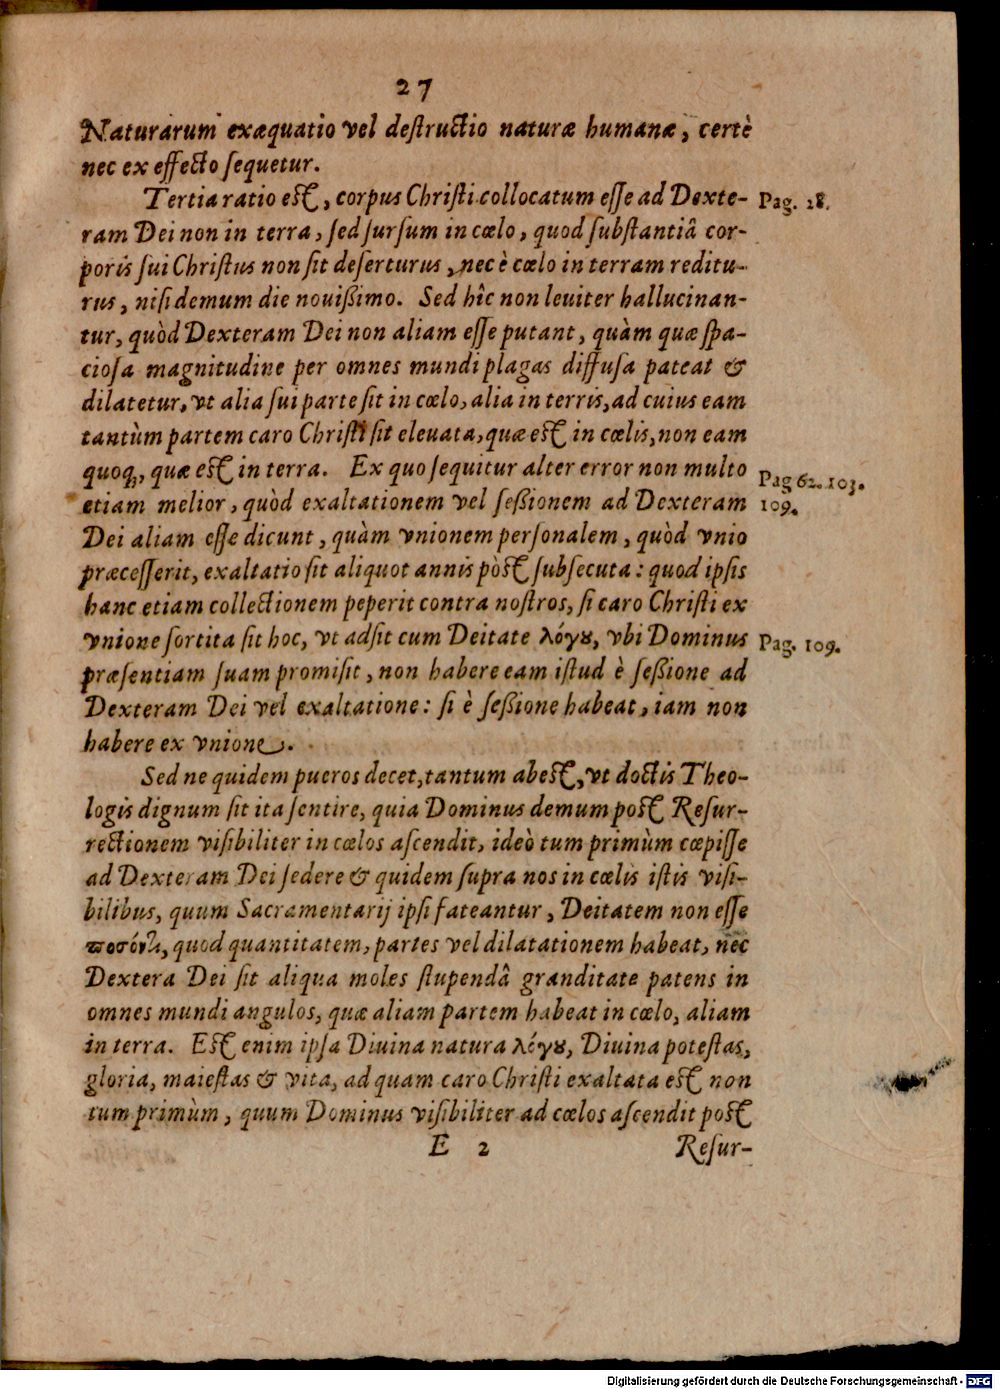 27
Naturarum exæquatio vel destructio naturæ humanæ, certè
nec ex effecto sequetur.
Tertia ratio est, corpus Christi collocatum esse ad Dexte- Pag. 28.
ram Dei non in terra, sed sursum in cœlo, quod substantiâ cor-
poris sui Christus non sit deserturus, nec è cœlo in terram reditu-
rus, nisi demum die nouißimo. Sed hîc non leuiter hallucinan-
tur, quòd Dexteram Dei non aliam esse putant, quàm quæ spa-
ciosa magnitudine per omnes mundi plagas diffusa pateat &
dilatetur, vt alia sui parte sit in cœlo, alia in terris, ad cuius eam
tantùm partem caro Christi sit eleuata, quæ est in cœlis, non eam
quoq;, quæ est in terra. Ex quo sequitur alter error non multo
etiam melior, quòd exaltationem vel seßionem ad Dexteram
Pag 62. 103.
109.
Dei aliam esse dicunt, quàm vnionem personalem, quòd vnio
præcesserit, exaltatio sit aliquot annis pòst subsecuta: quod ipsis
hanc etiam collectionem peperit contra nostros, si caro Christi ex
vnione sortita sit hoc, vt adsit cum Deitate λόγȣ, vbi Dominus Pag. 109.
præsentiam suam promisit, non habere eam istud è seßione ad
Dexteram Dei vel exaltatione: si è seßione habeat, iam non
habere ex vnione.
Sed ne quidem pueros decet, tantum abest, vt doctis Theo-
logis dignum sit ita sentire, quia Dominus demum post Resur-
rectionem visibiliter in cœlos ascendit, ideò tum primùm cœpisse
ad Dexteram Dei sedere & quidem supra nos in cœlis istis visi-
bilibus, quum Sacramentarij ipsi fateantur, Deitatem non esse
ποσόν τι, quod quantitatem, partes vel dilatationem habeat, nec
Dextera Dei sit aliqua moles stupendâ granditate patens in
omnes mundi angulos, quæ aliam partem habeat in cœlo, aliam
in terra. Est enim ipsa Diuina natura λόγȣ, Diuina potestas,
gloria, maiestas & vita, ad quam caro Christi exaltata est non
tum primùm, quum Dominus visibiliter ad cœlos ascendit post
E 2 Resur-
Digitalisierung gefördert durch die Deutsche Forschungsgemeinschaft - DFG